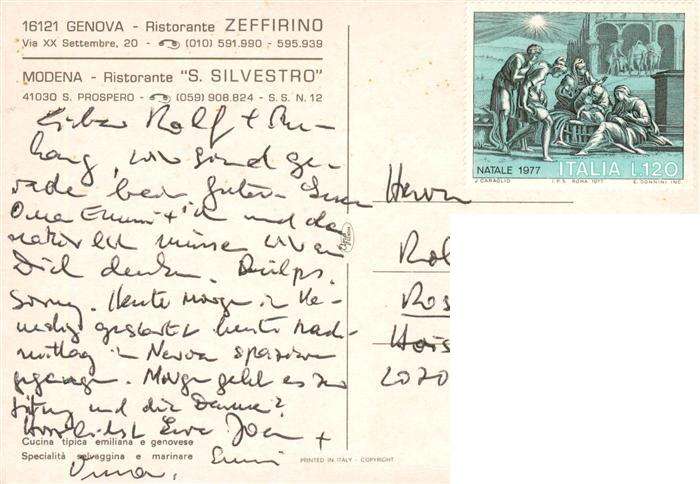 16121 GENOVA - Ristorante ZEFFIRINO
Via XX Settembre, 20 - (010) 591.990 - 595.939
MODENA - Ristorante "S. SILVESTRO"
41030 S. PROSPERO - (059) 908.824 - S.S. N. 12
Lieber Rolf +
hang, wir sind ge-
rade beim guten
Oma Emmi + ich und da
natürlich müssen wir an
Dich denken.
Sorry. Heute Morgen in Ve-
nedig gestartet heute Nach-
mittag in Nervi spazieren
gegangen. Morgen geht es zur
und die Damen?
Herzlichst +
Oma Emmi
Cucina tipica emiliana e genovese
Specialità selvaggina e marinare
PRINTED IN ITALY - COPYRIGHT
NATALE 1977 ITALIA L.120
J. CARAGLIO I.P.S. ROMA 1977 E. DONNINI INC.
Herrn
Rol
Ros
2020